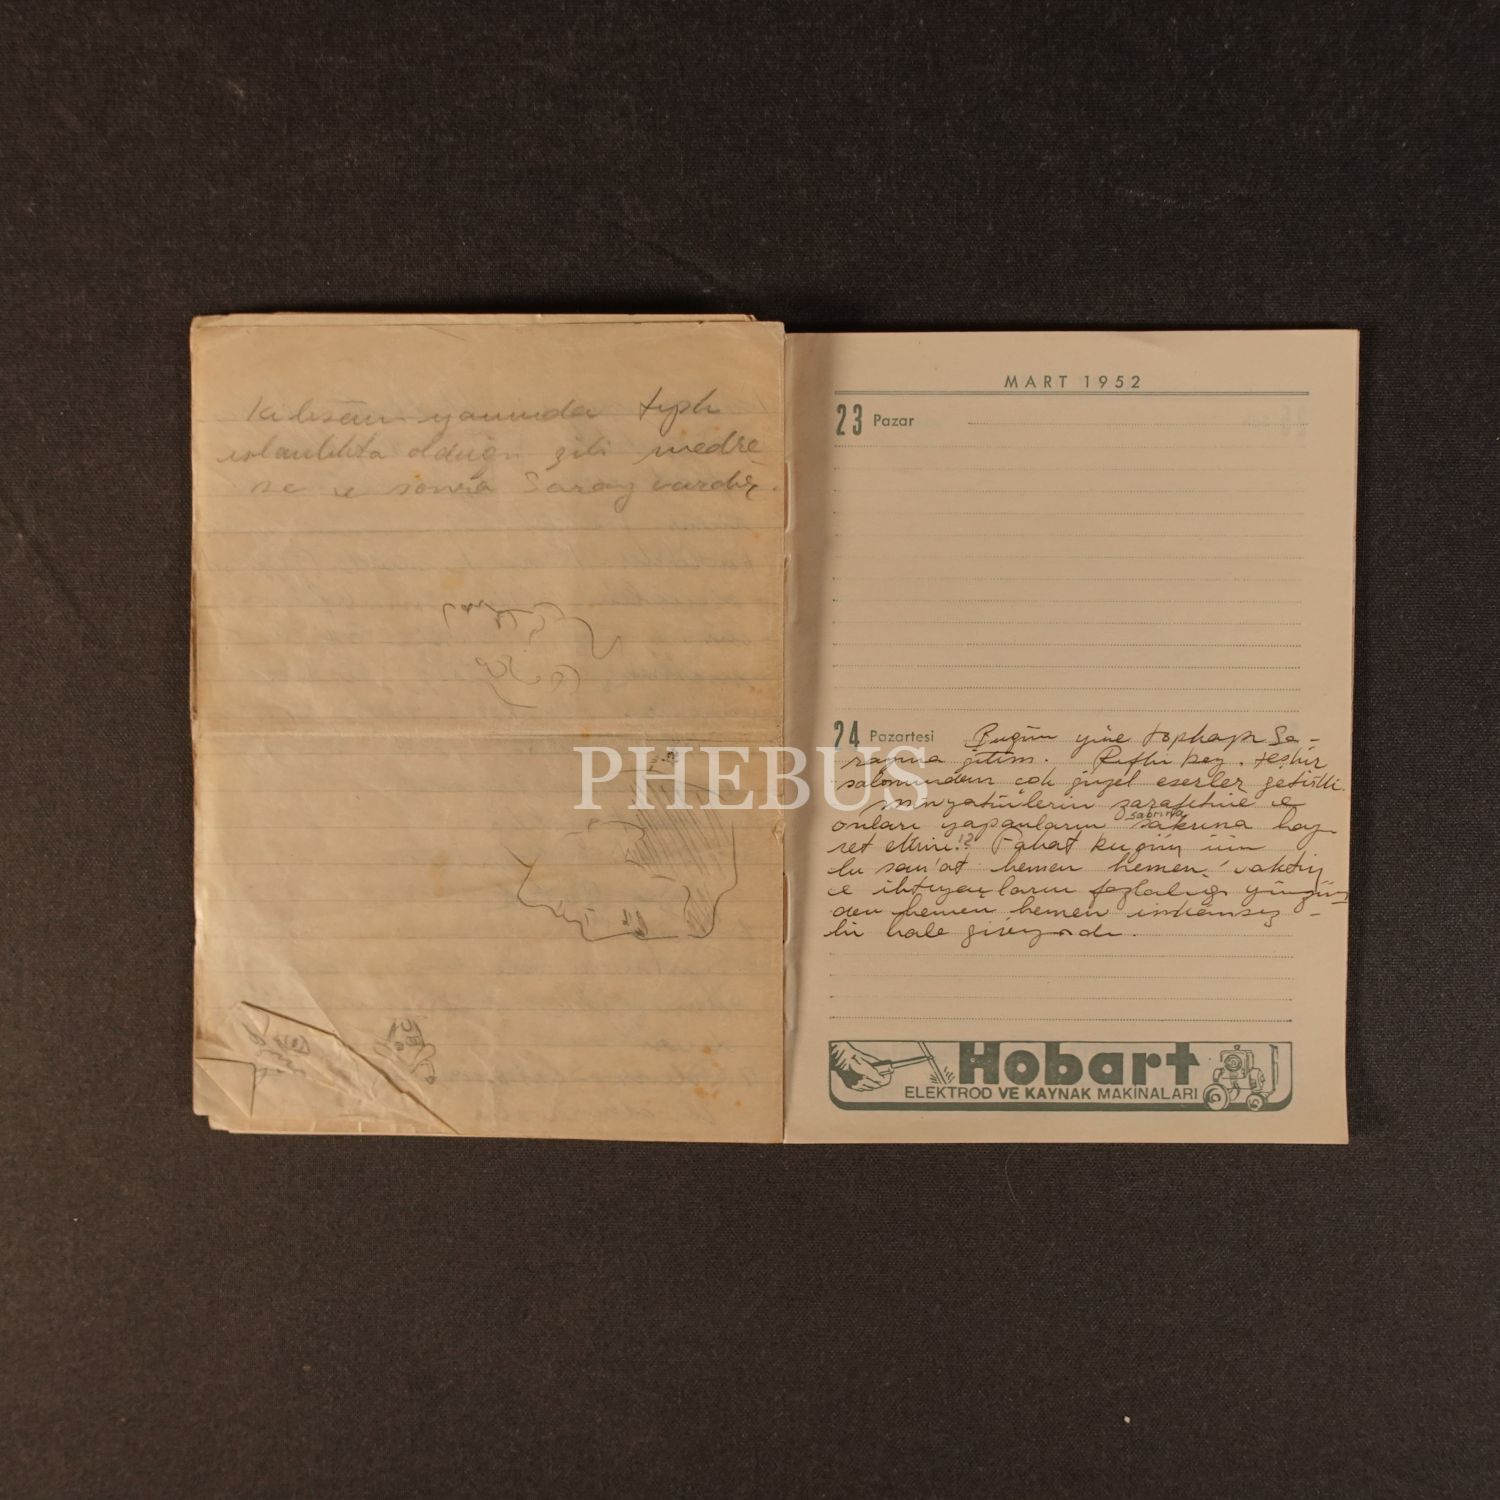 Kilisenin yanında tıpkı
islamlıkta olduğu gibi medre
se ve sonra Saray vardır.
MART 1952
23 Pazar
24 Pazartesi Bugün yine topkapı Sa-
rayına gittim. Rıfkı bey, teşhir
salonundan çok güzel eserler getirtti.
minyatürlerin zarafetine ve
sabrına
onları yapanların sabrına hay
ret ettim!? Fakat bugün için
bu san'at hemen hemen, vaktin
ve ihtiyaçların fazlalığı yüzün
den hemen hemen imkânsız -
bir hale giriyordu.
PHEBUS
Hobart
ELEKTROD VE KAYNAK MAKİNALARI